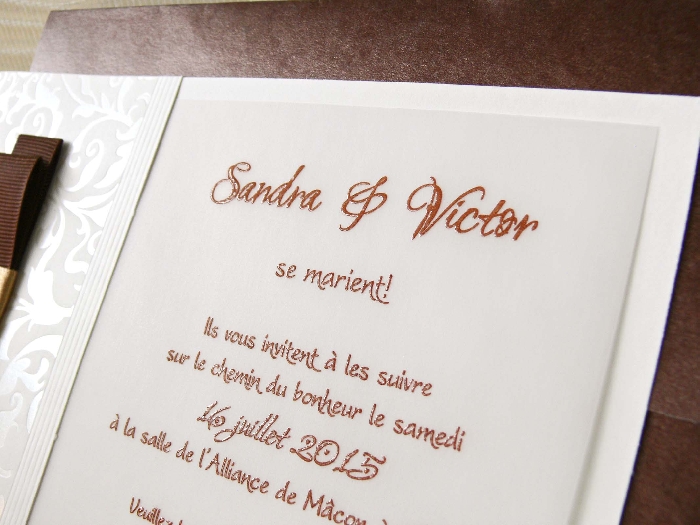 Sandra & Victor
se marient!
Ils vous invitent à les suivre
sur le chemin du bonheur le samedi
16 juillet 2015
à la salle de l'Alliance de Mâcon à
Veuillez